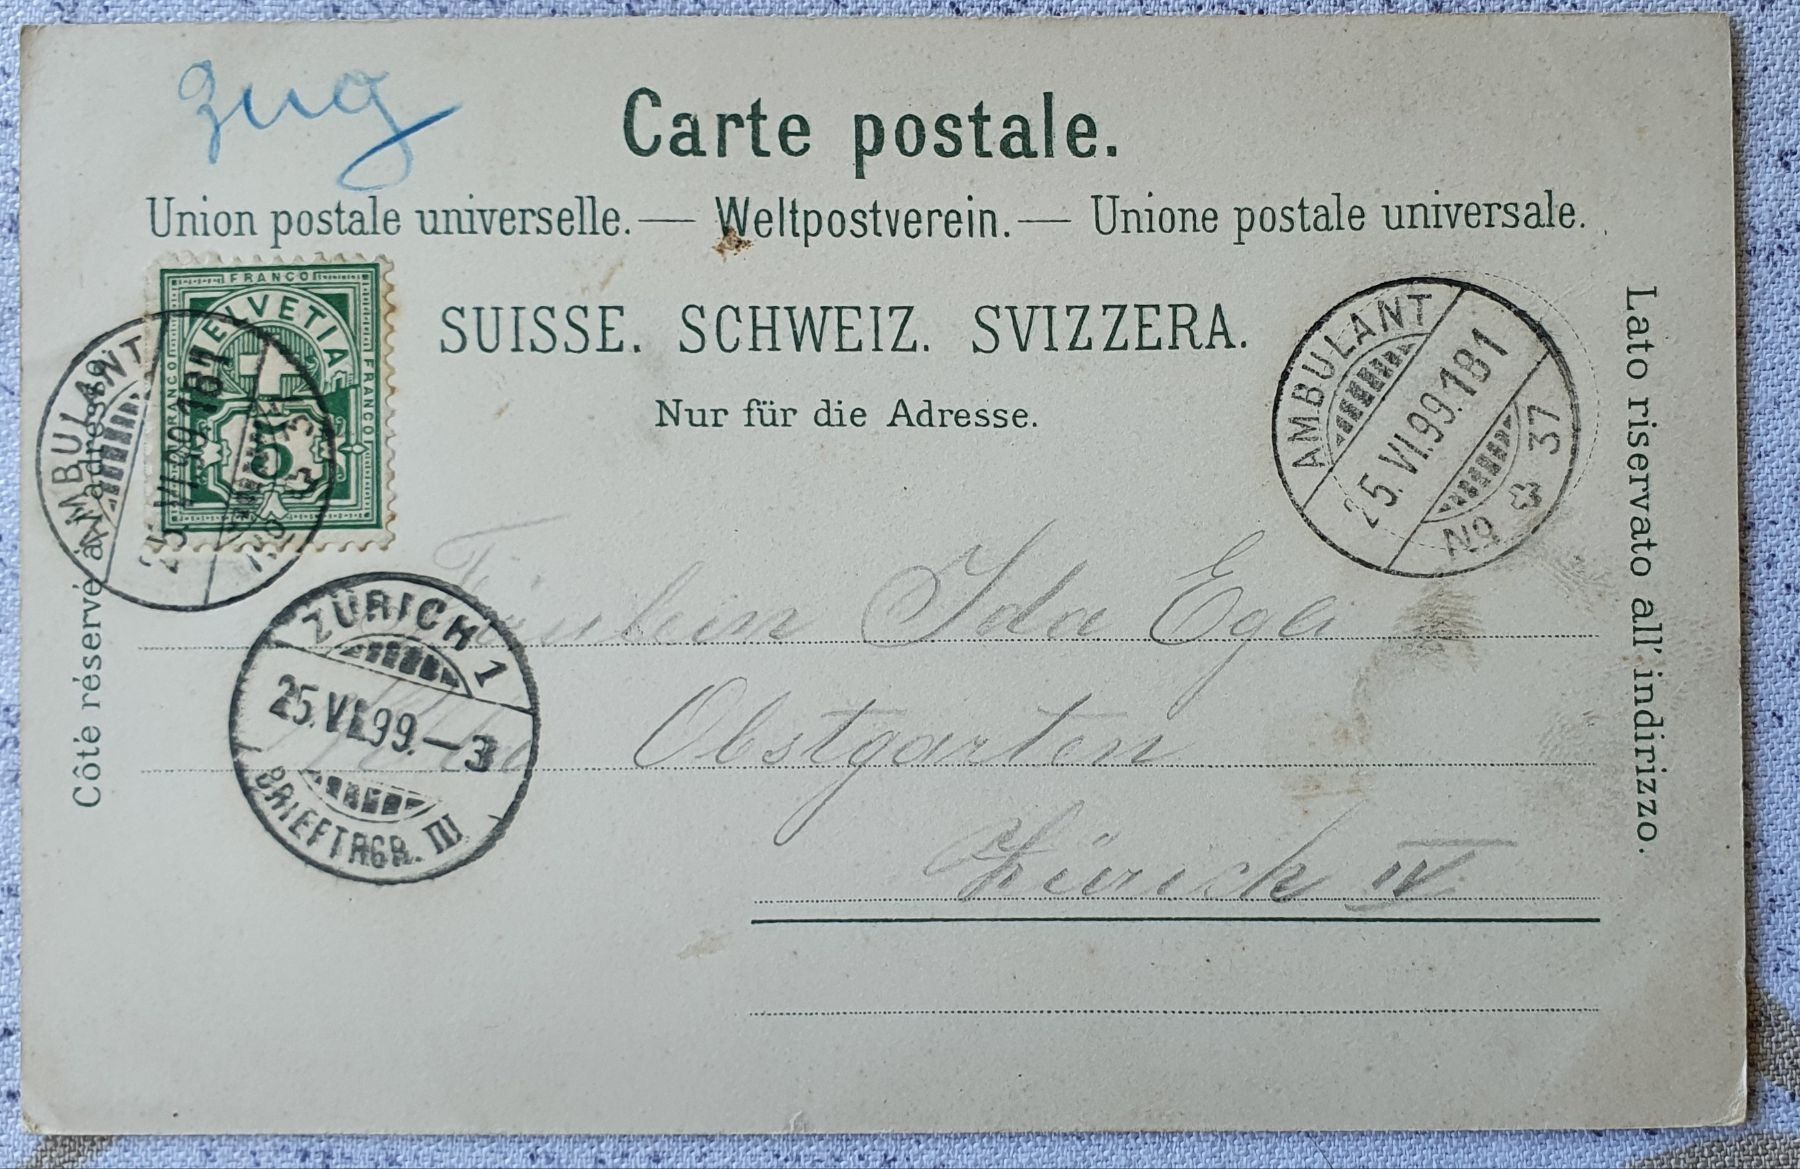 Zug
Carte postale.
Union postale universelle. — Weltpostverein. — Unione postale universale.
SUISSE. SCHWEIZ. SVIZZERA.
Nur für die Adresse.
Côté réservé à l'adresse
Lato riservato all' indirizzo.
FRANCO
HELVETIA
FRANCO
FRANCO
5
AMBULANT
25.VI.99.181
No 37
AMBULANT
25.VI.99.181
No 37
ZÜRICH 1
25.VI.99.-3
BRIEFTRGR. III
Fräulein Ida Egli
Obstgarten
Zürich IV